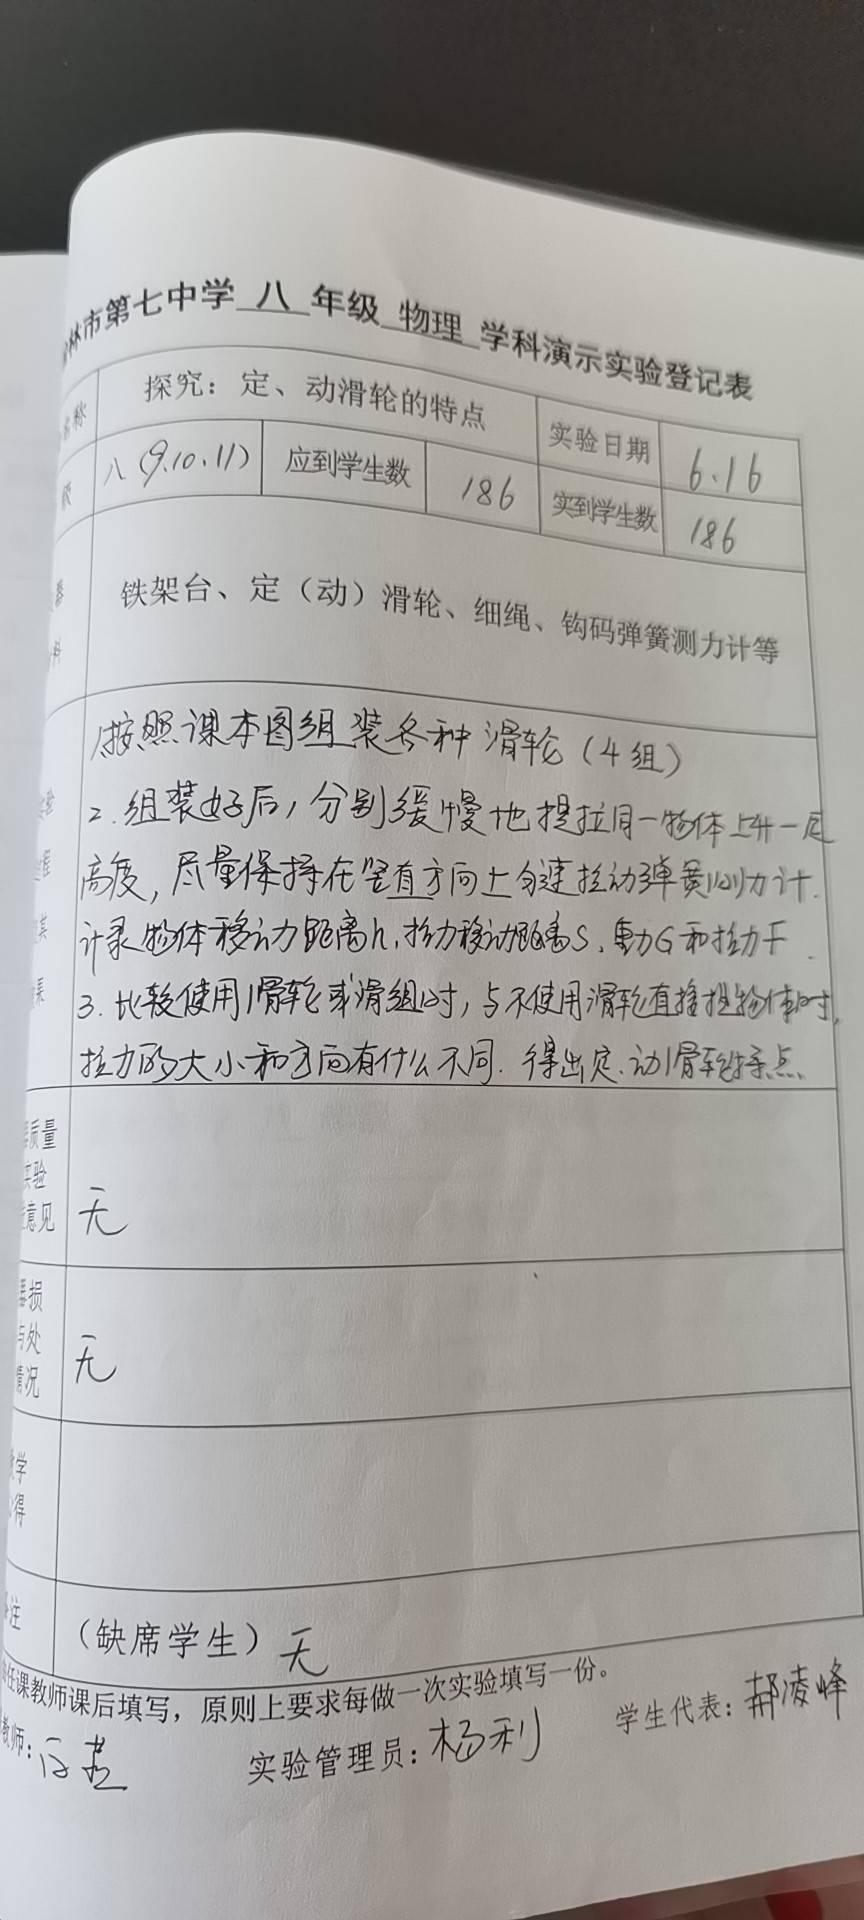 林市第七中学 八 年级 物理 学科演示实验登记表
名称 探究：定、动滑轮的特点 实验日期 6.16
级 八（9.10.11） 应到学生数 186 实到学生数 186
器 铁架台、定（动）滑轮、细绳、钩码弹簧测力计等
料
1.按照课本图组装各种滑轮（4组）
2.组装好后，分别缓慢地提拉同一物体上升一定
高度，尽量保持在竖直方向上匀速拉动弹簧测力计.
记录物体移动距离h,拉力移动距离S、重力G和拉力F.
3.比较使用滑轮或滑组时，与不使用滑轮直接拉物体时,
拉力的大小和方向有什么不同.得出定.动滑轮特点.
验
程
其
果
质量
实验
意见 无
损
与处
情况 无
学
得
注 （缺席学生）无
任课教师课后填写，原则上要求每做一次实验填写一份。
教师： 实验管理员：杨利 学生代表：郝凌峰